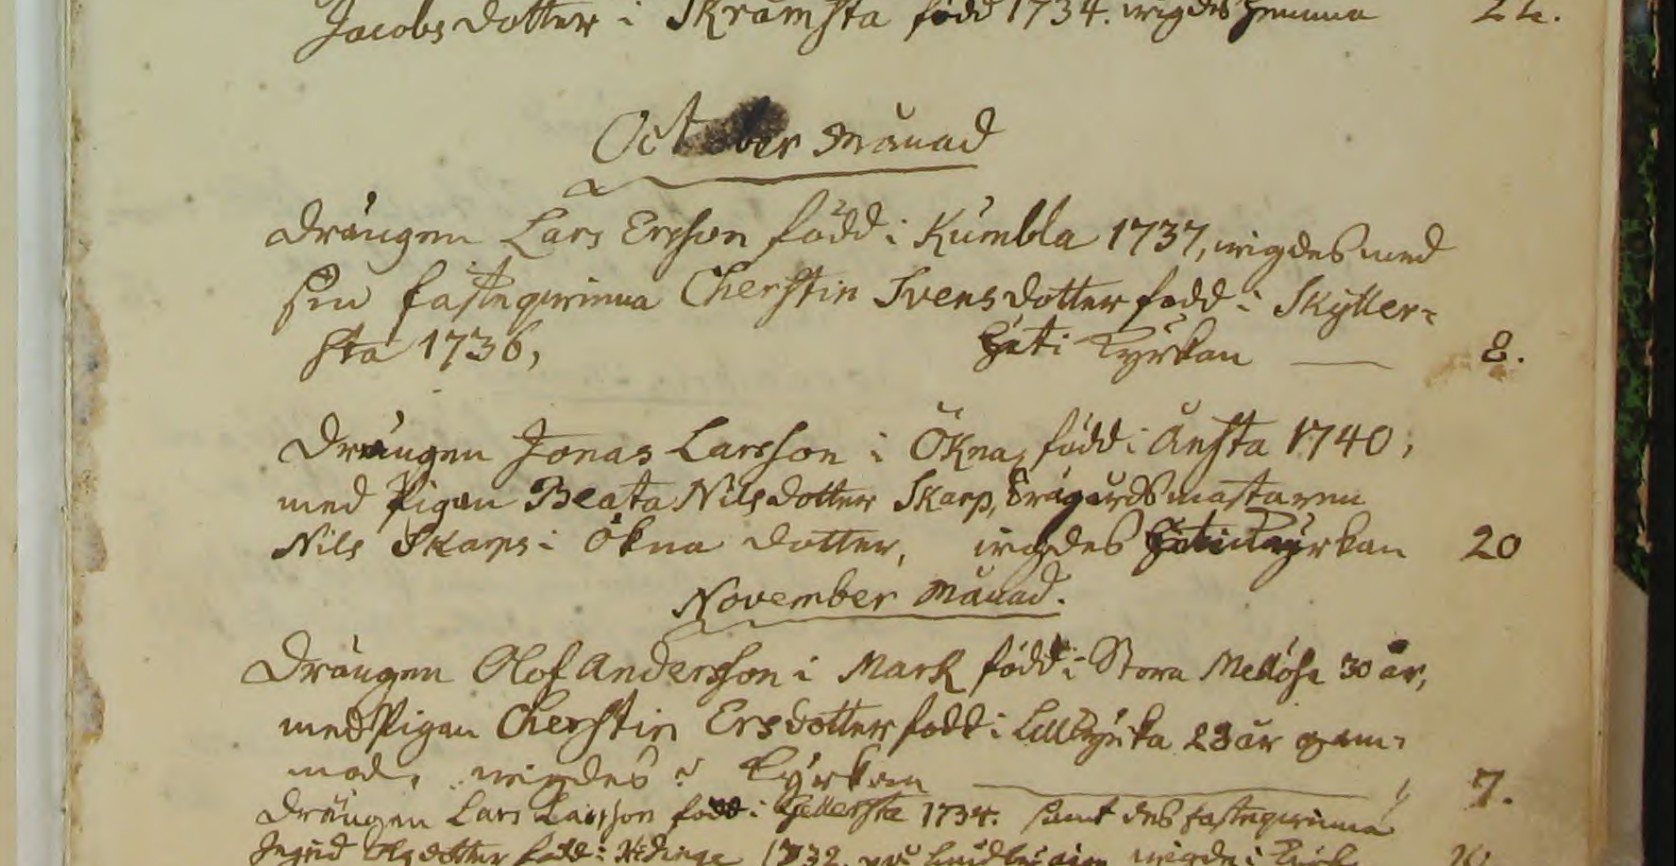 Jacobs dotter i Skramsta född 1734. wigdes hemma 22.
October Månad
Drängen Lars Ersson född i Kumbla 1737, wigdes med
sin fästeqwinna Cherstin Svens dotter född i Skyller=
sta 1736, här i Kyrkan 8.
Drängen Jonas Larsson i Ökna, född i Ånsta 1740,
med Pigan Beata Nils dotter Skarp, Trägårdsmästaren
Nils Skarps i Ökna dotter, wigdes här i Kyrkan 20
November Månad.
Drängen Olof Andersson i Mark född i Stora Mellösa 30 år,
med Pigan Cherstin Ersdotter född i Lillkyrka 28 år gam=
mal, wigdes i Kyrkan 7.
Drängen Lars Larsson född i Gellersta 1734. samt des fästeqwinna
Ingrid dotter född i Hidinge 1732. wigde i Kyrk